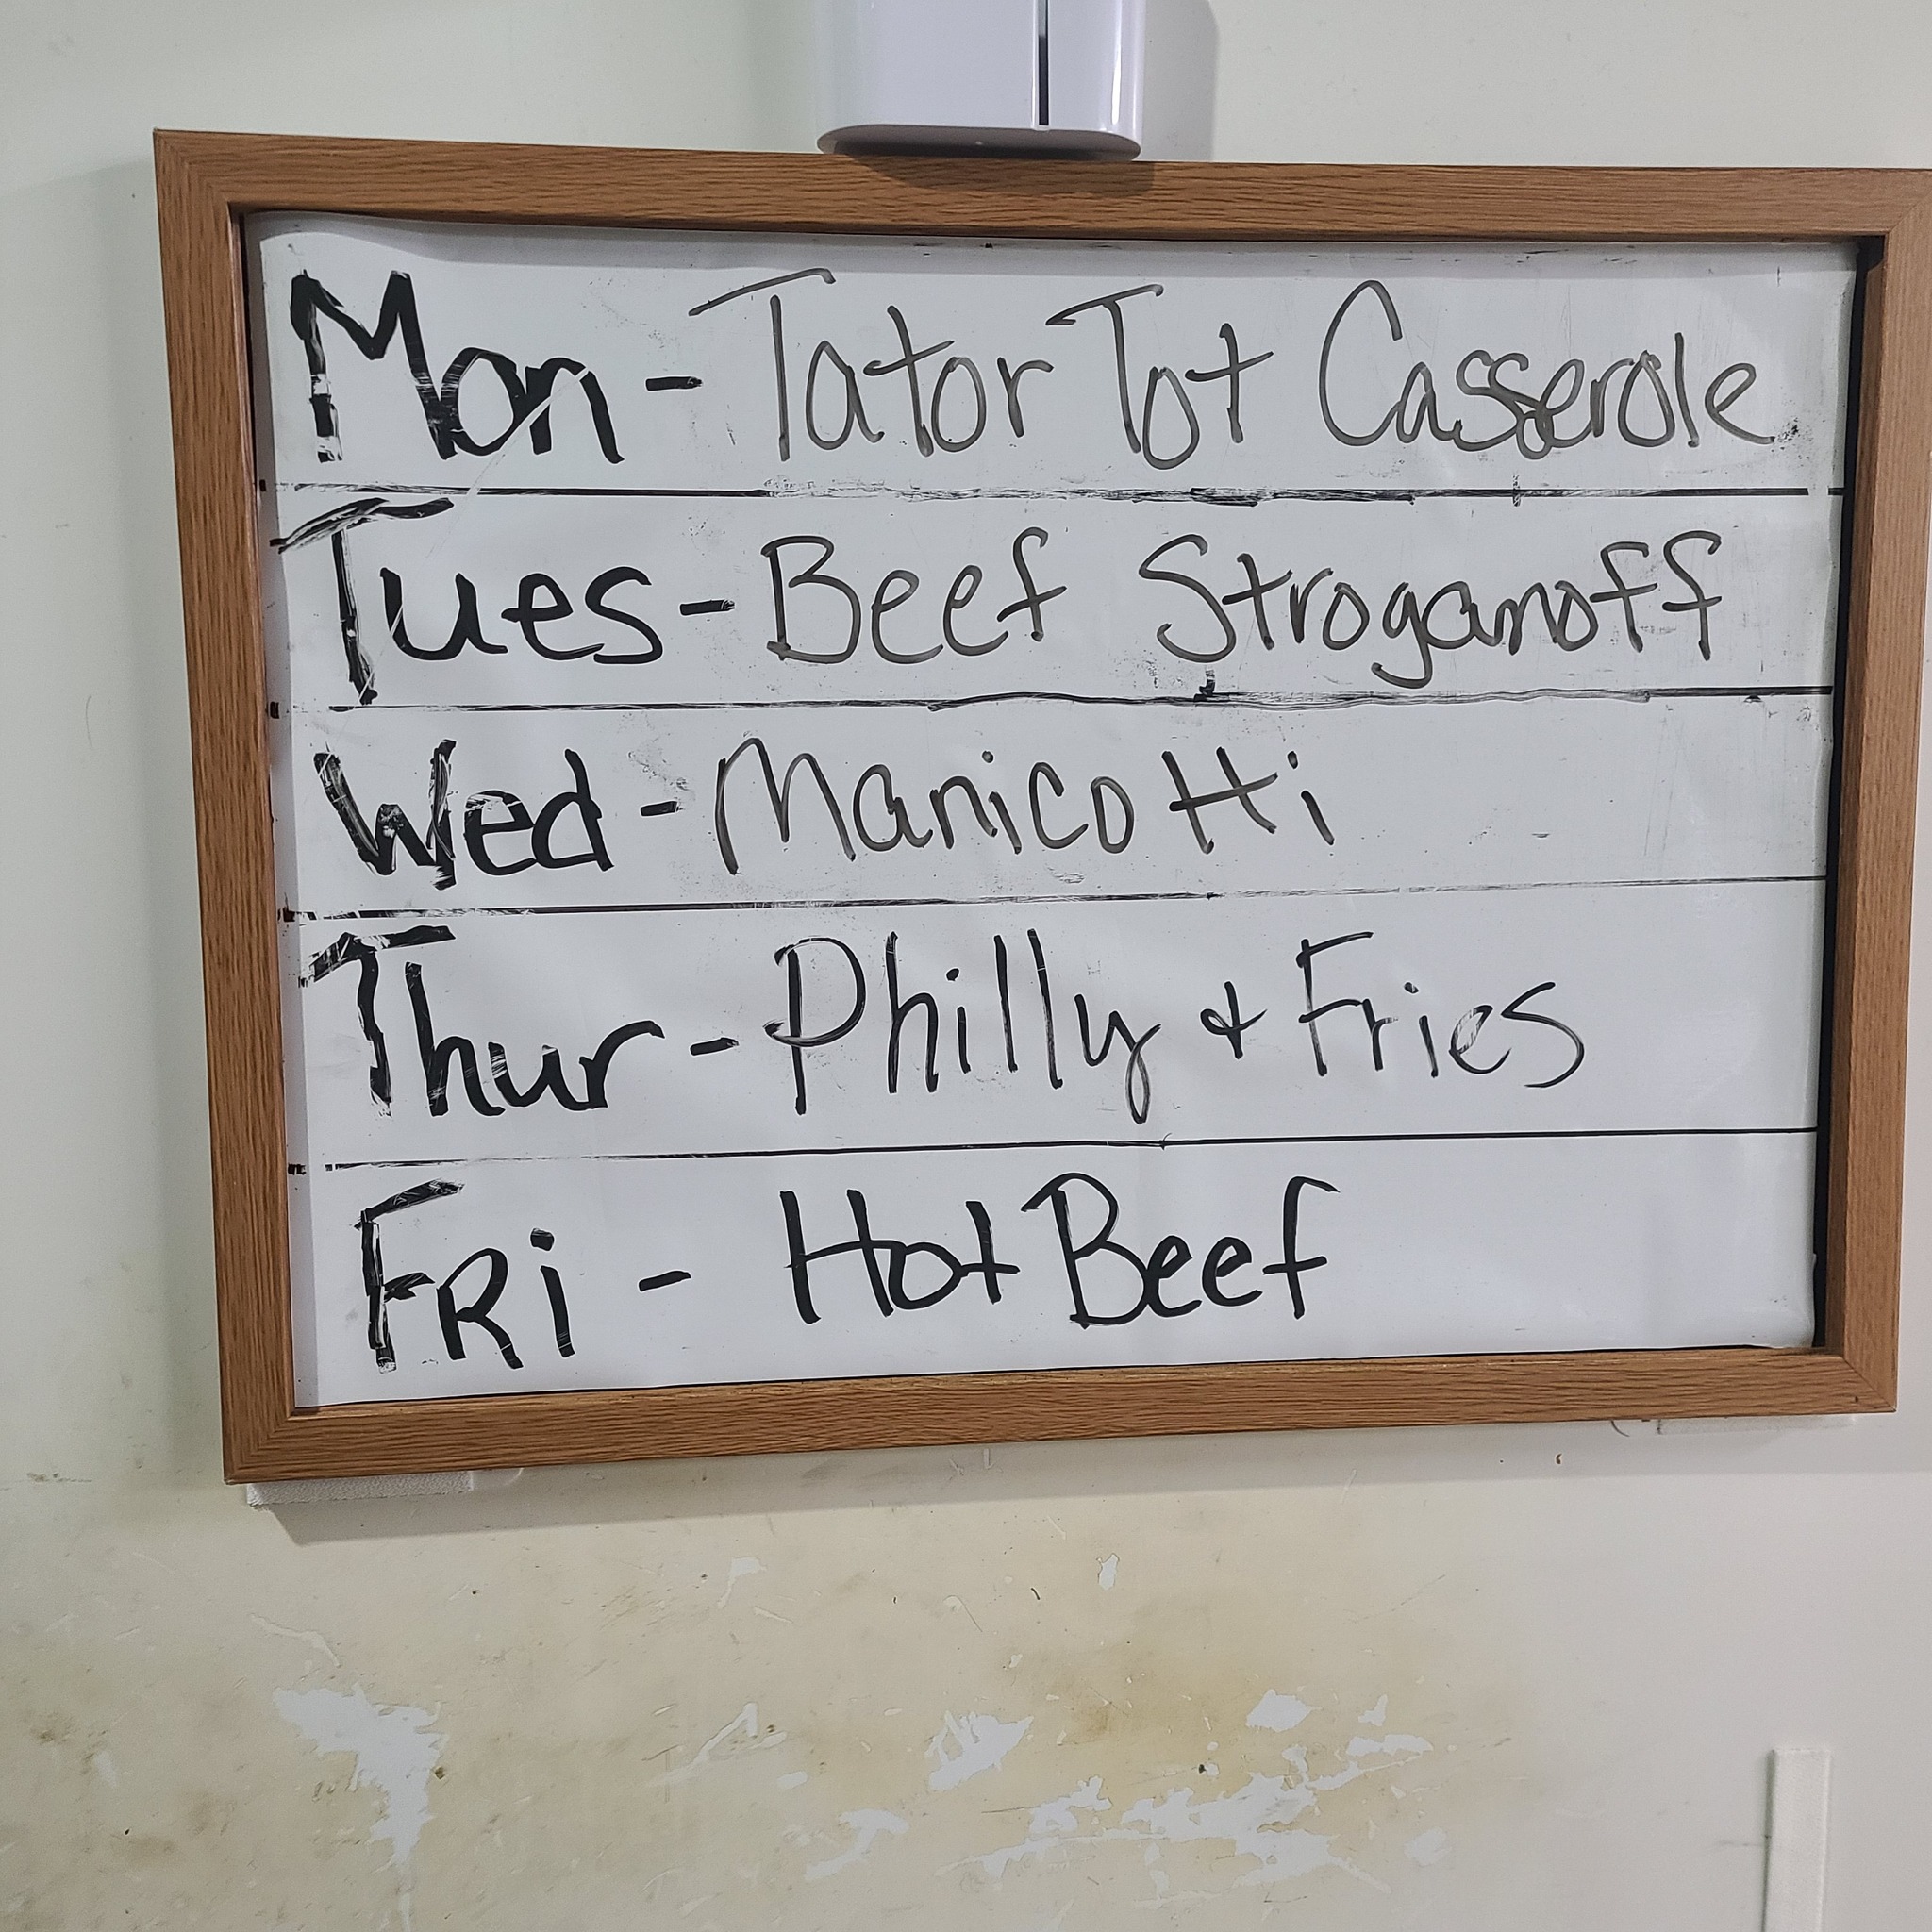 Mon - Tator Tot Casserole
Tues - Beef Stroganoff
Wed - Manicotti
Thur - Philly & Fries
FRi - Hot Beef